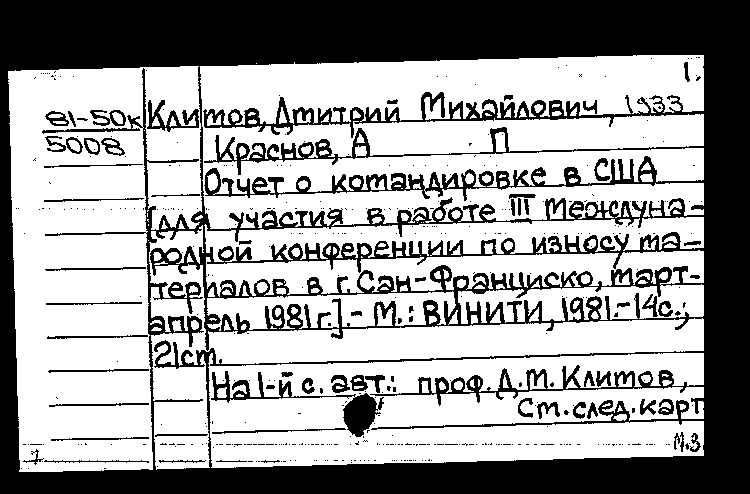 1.
81-50к Климов, Дмитрий Михайлович, 1933
5008 Краснов, А П
Отчет о командировке в США
[для участия в работе III Междуна-
родной конференции по износу ма-
териалов в г. Сан-Франциско, март-
апрель 1981 г.].- М.: ВИНИТИ, 1981.-14с.;
21см.
На 1-й с. авт.: проф. Д.М. Климов,
См. след. карт
М.З.